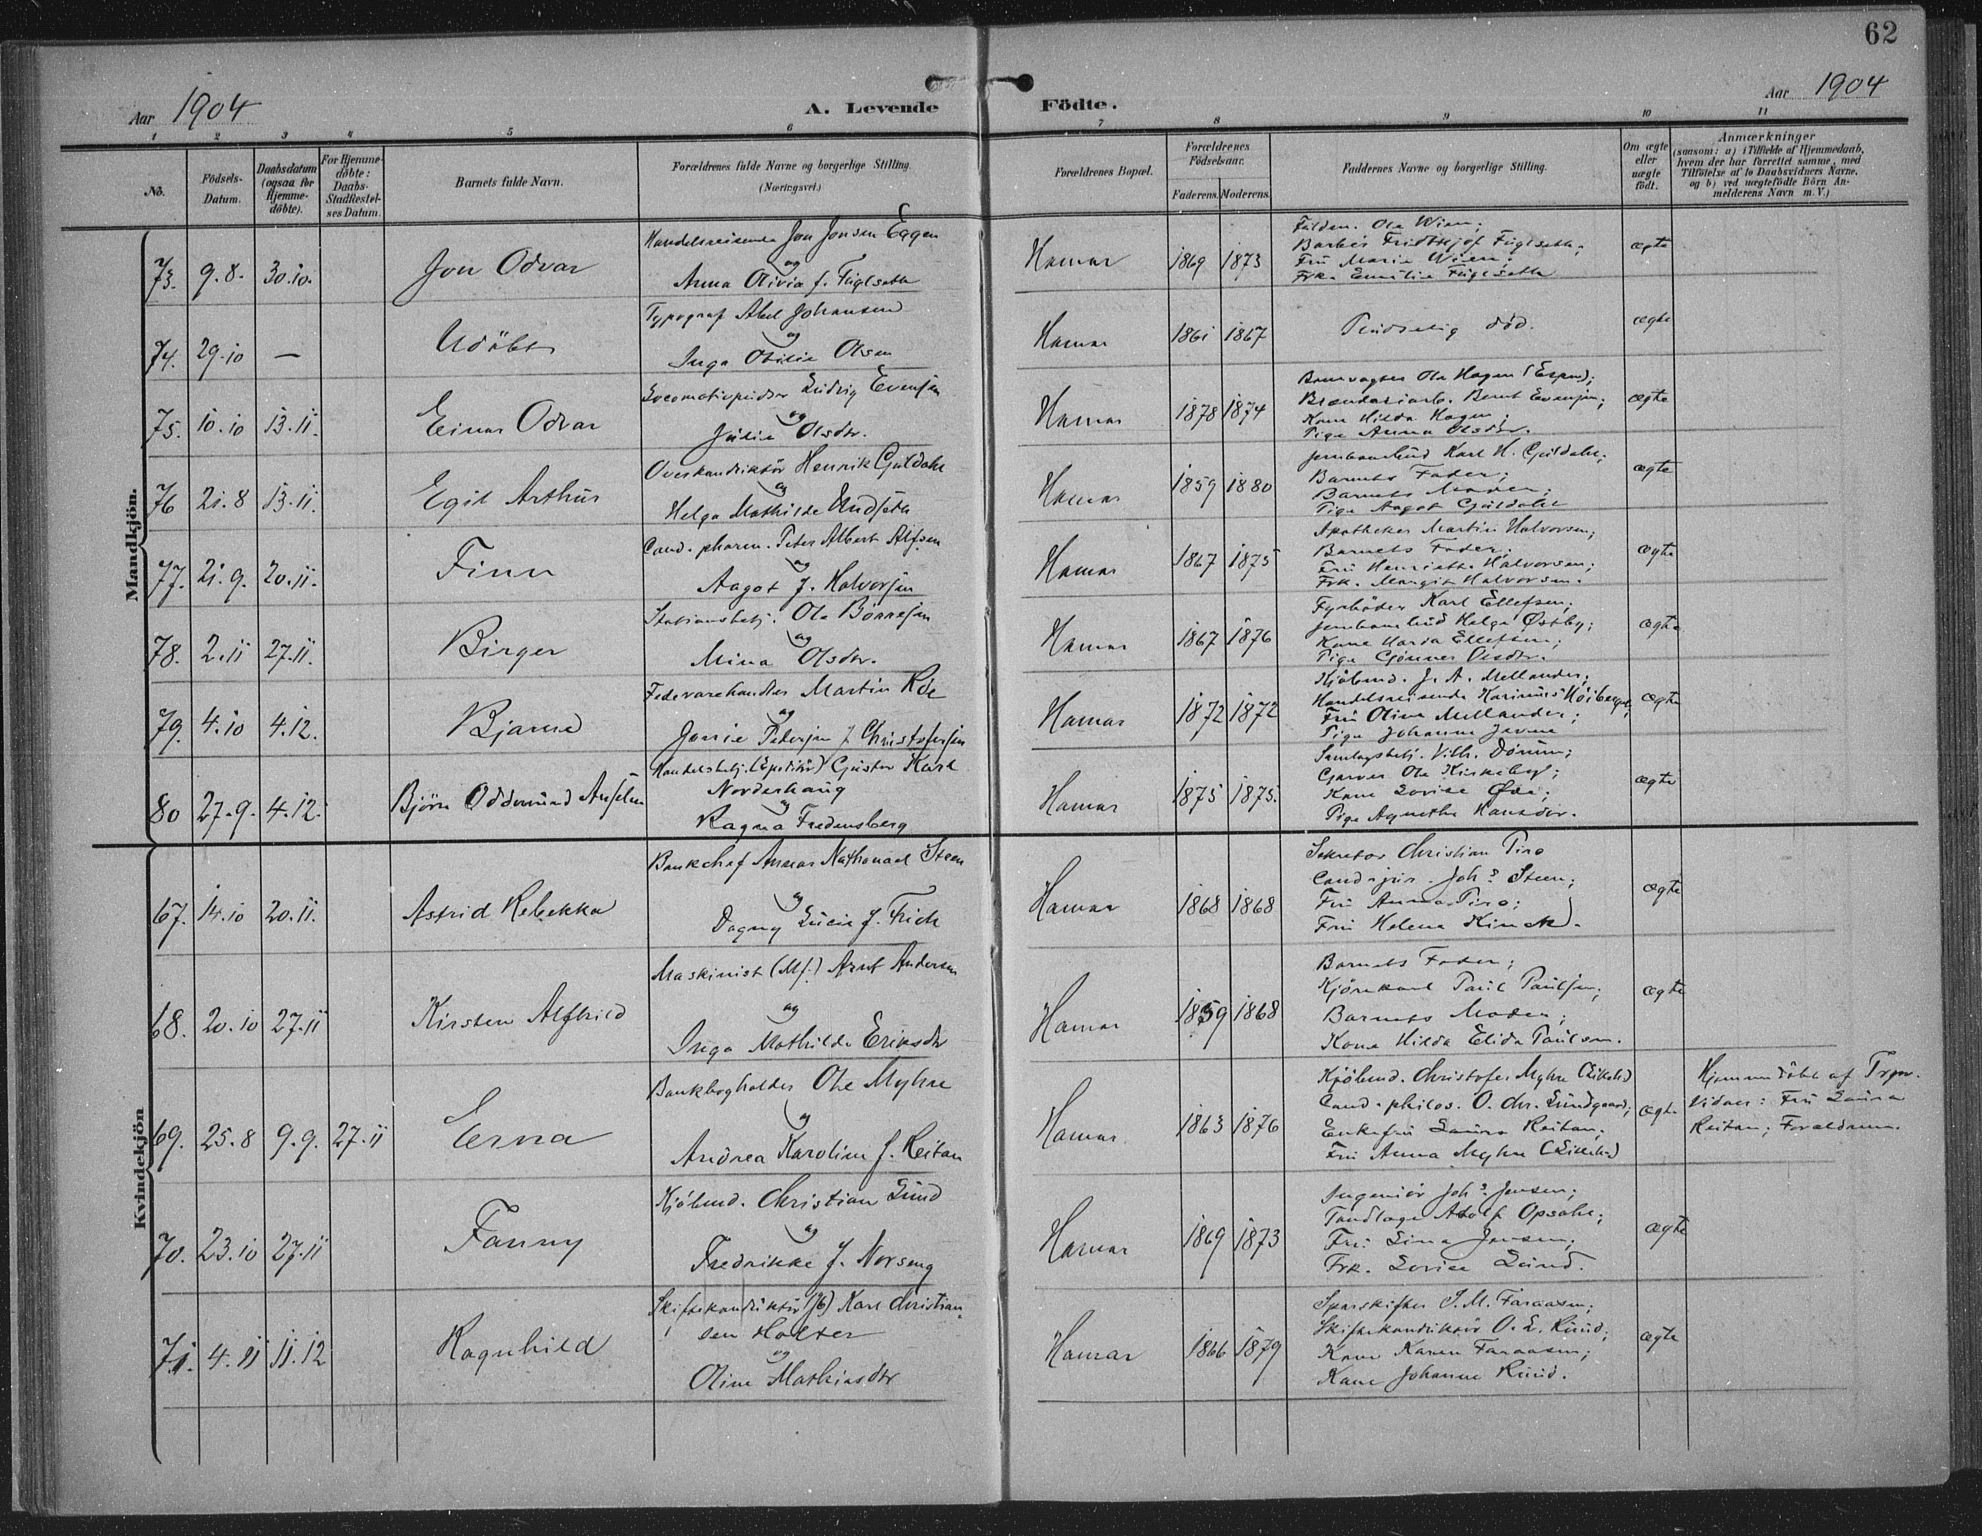 62
Aar 1904
A. Levende
Födte.
Aar 1904
1 2 3 4 5 6 7 8 9 10 11
Nö.
Födsels-
Datum.
Daabsdatum
(ogsaa for
Hjemme-
döbte).
For Hjemme-
döbte:
Daabs-
Stadfæstel-
ses Datum.
Barnets fulde Navn.
Forældrenes fulde Navne og borgerlige Stilling.
(Næringsvei.)
Forældrenes Bopæl.
Forældrenes
Födselsaar.
Faderens. Moderens.
Faddernes Navne og borgerlige Stilling.
Om ægte
eller
uægte
födt.
Anmærkninger
(saasom: a) i Tilfælde af Hjemmedaab,
hvem der har forrettet samme, med
Tilföielse af to Daabsvidners Navne,
og b) ved uægtefödte Börn An-
melderens Navn m. V.)
Mandkjön.
73. 9.8. 30.10. Jon Odvar
Handelsreisende Jon Jonsen Eggen
og
Anna Olivia f. Fuglseth
Hamar 1869 1873
Ola Wien;
Fridthjof Fuglseth;
Fru Marie Wien;
Frk. Emilie Fuglseth
ægte
74. 29.10 — Udöbt
Typograf Abel Johansen
og
Inga Otilie Olsen
Hamar 1861 1867
Pludselig död.
ægte
75. 10.10 13.11. Einar Odvar
Locomotivpudser Ludvig Evensen
og
Julie Olsdtr.
Hamar 1878 1874
Banevogter Ole Hagen (Espa);
Brænderiarb. Bernt Evensen;
Kone Hilda Hagen;
Pige Anna Olsdtr.
ægte
76 21.8 13.11. Egil Arthur
Overkonduktör Henrik Guldahl
og
Helga Mathilde Undseth
Hamar 1859 1880
Jernbanebud Karl H. Guldahl;
Barnets Fader;
Barnets Moder;
Pige Aagot Guldahl
ægte
77. 21.9. 20.11. Finn
Cand. pharm. Peter Albert Alfsen
og
Aagot f. Halvorsen
Hamar 1867 1875
Apotheker Martin Halvorsen;
Barnets Fader;
Fru Henriette Halvorsen;
Frk. Margit Halvorsen.
ægte
78. 2.11 27.11. Birger
Stationsbetj. Ole Börresen
og
Mina Olsdtr.
Hamar 1867 1876
Fyrböder Karl Ellefsen;
Jernbanebud Helge Østby;
Kone Marda Ellefsen;
Pige Gjönner Olsdtr.
ægte
79. 4.10 4.12. Bjarne
Fedevarehandler Martin Röe
og
Jonie Pedersen f. Christofersen
Hamar 1872 1872
Kjöbmd. J. A. Mellander;
Handelsreisende Karinius Höiberget;
Fru Oline Mellander;
Pige Johanne
ægte
80 27.9. 4.12. Björn Oddmund Anselm
Handelsbetj. (Expeditör) Gustav Karl
Norderhaug
og
Ragna Fredensberg
Hamar 1875 1875.
Samlagsbetj. Vilh. Dörum;
Garver Ole Kirkeby;
Kone Lovise Øde;
Pige Agnethe Hansdtr.
ægte
Kvindekjön
67. 14.10 20.11. Astrid Rebekka
Bankchef Anders Nathanael Steen
og
Dagny Lucie f. Frich
Hamar 1868 1868
Sekretær Christian Piro
Cand. jur. Johs. Steen;
Fru Anna Piro;
Fru Helena Kinck.
ægte
68. 20.10 27.11 Kirsten Alfhild
Maskinist (Mf.) Arnt Andersen
og
Inga Mathilde Eriksdtr
Hamar 1859 1868
Barnets Fader;
Kjörekarl Paul Paulsen;
Barnets Moder;
Kone Hilda Elida Paulsen.
ægte
69. 25.8 9.9. 27.11 Erna
Bankbogholder Ole Myhre
og
Andrea Karoline f. Reitan
Hamar. 1863 1876
Kjöbmd. Christofer Myhre
Cand. philos. O. Chr. Lundgaard;
Enkefru Laura Reitan;
Fru Anna Myhre
ægte
Hjemmedöbt af
Vidner: Fru Laura
Reitan; Forældrene.
70. 23.10 27.11 Fanny
Kjöbmd. Christian Lund
og
Fredrikke f. Norseng
Hamar 1869 1873
Ingeniör Johs. Jensen;
Tandlæge Adolf Opsahl;
Fru Lina Jensen;
Frk. Lovise Lund.
ægte
71. 4.11 11.12 Ragnhild
Skiftekonduktör (Jb) Karl Christian-
sen Holter
og
Oline Mathiasdtr
Hamar 1866 1879
Sporskifter J. M. Faraasen;
Skiftekonduktör O. L. Ruud;
Kone Karen Faraasen;
Kone Johanne Ruud.
ægte